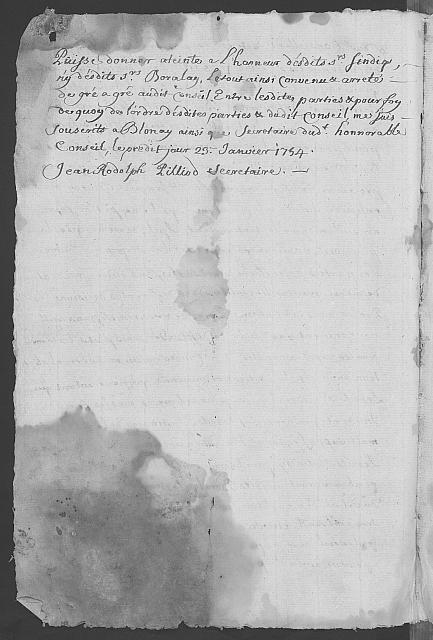 Puisse donner ateinte a L'honneur désdits s.rs sindiq,
ny désdits s.rs Boralay, Le tout ainsi convenu & arretés
de gré a gré audit Conseil, Entre lesdites parties & pour foy
de quoy de l'ordre désdites parties & dudit Conseil, me suis
souscrits a Blonay ainsi que Secretaire dud.t honnorable
Conseil, le prédit jour 23. Janvier 1754.
Jean Rodolph Pilliod Secretaire.